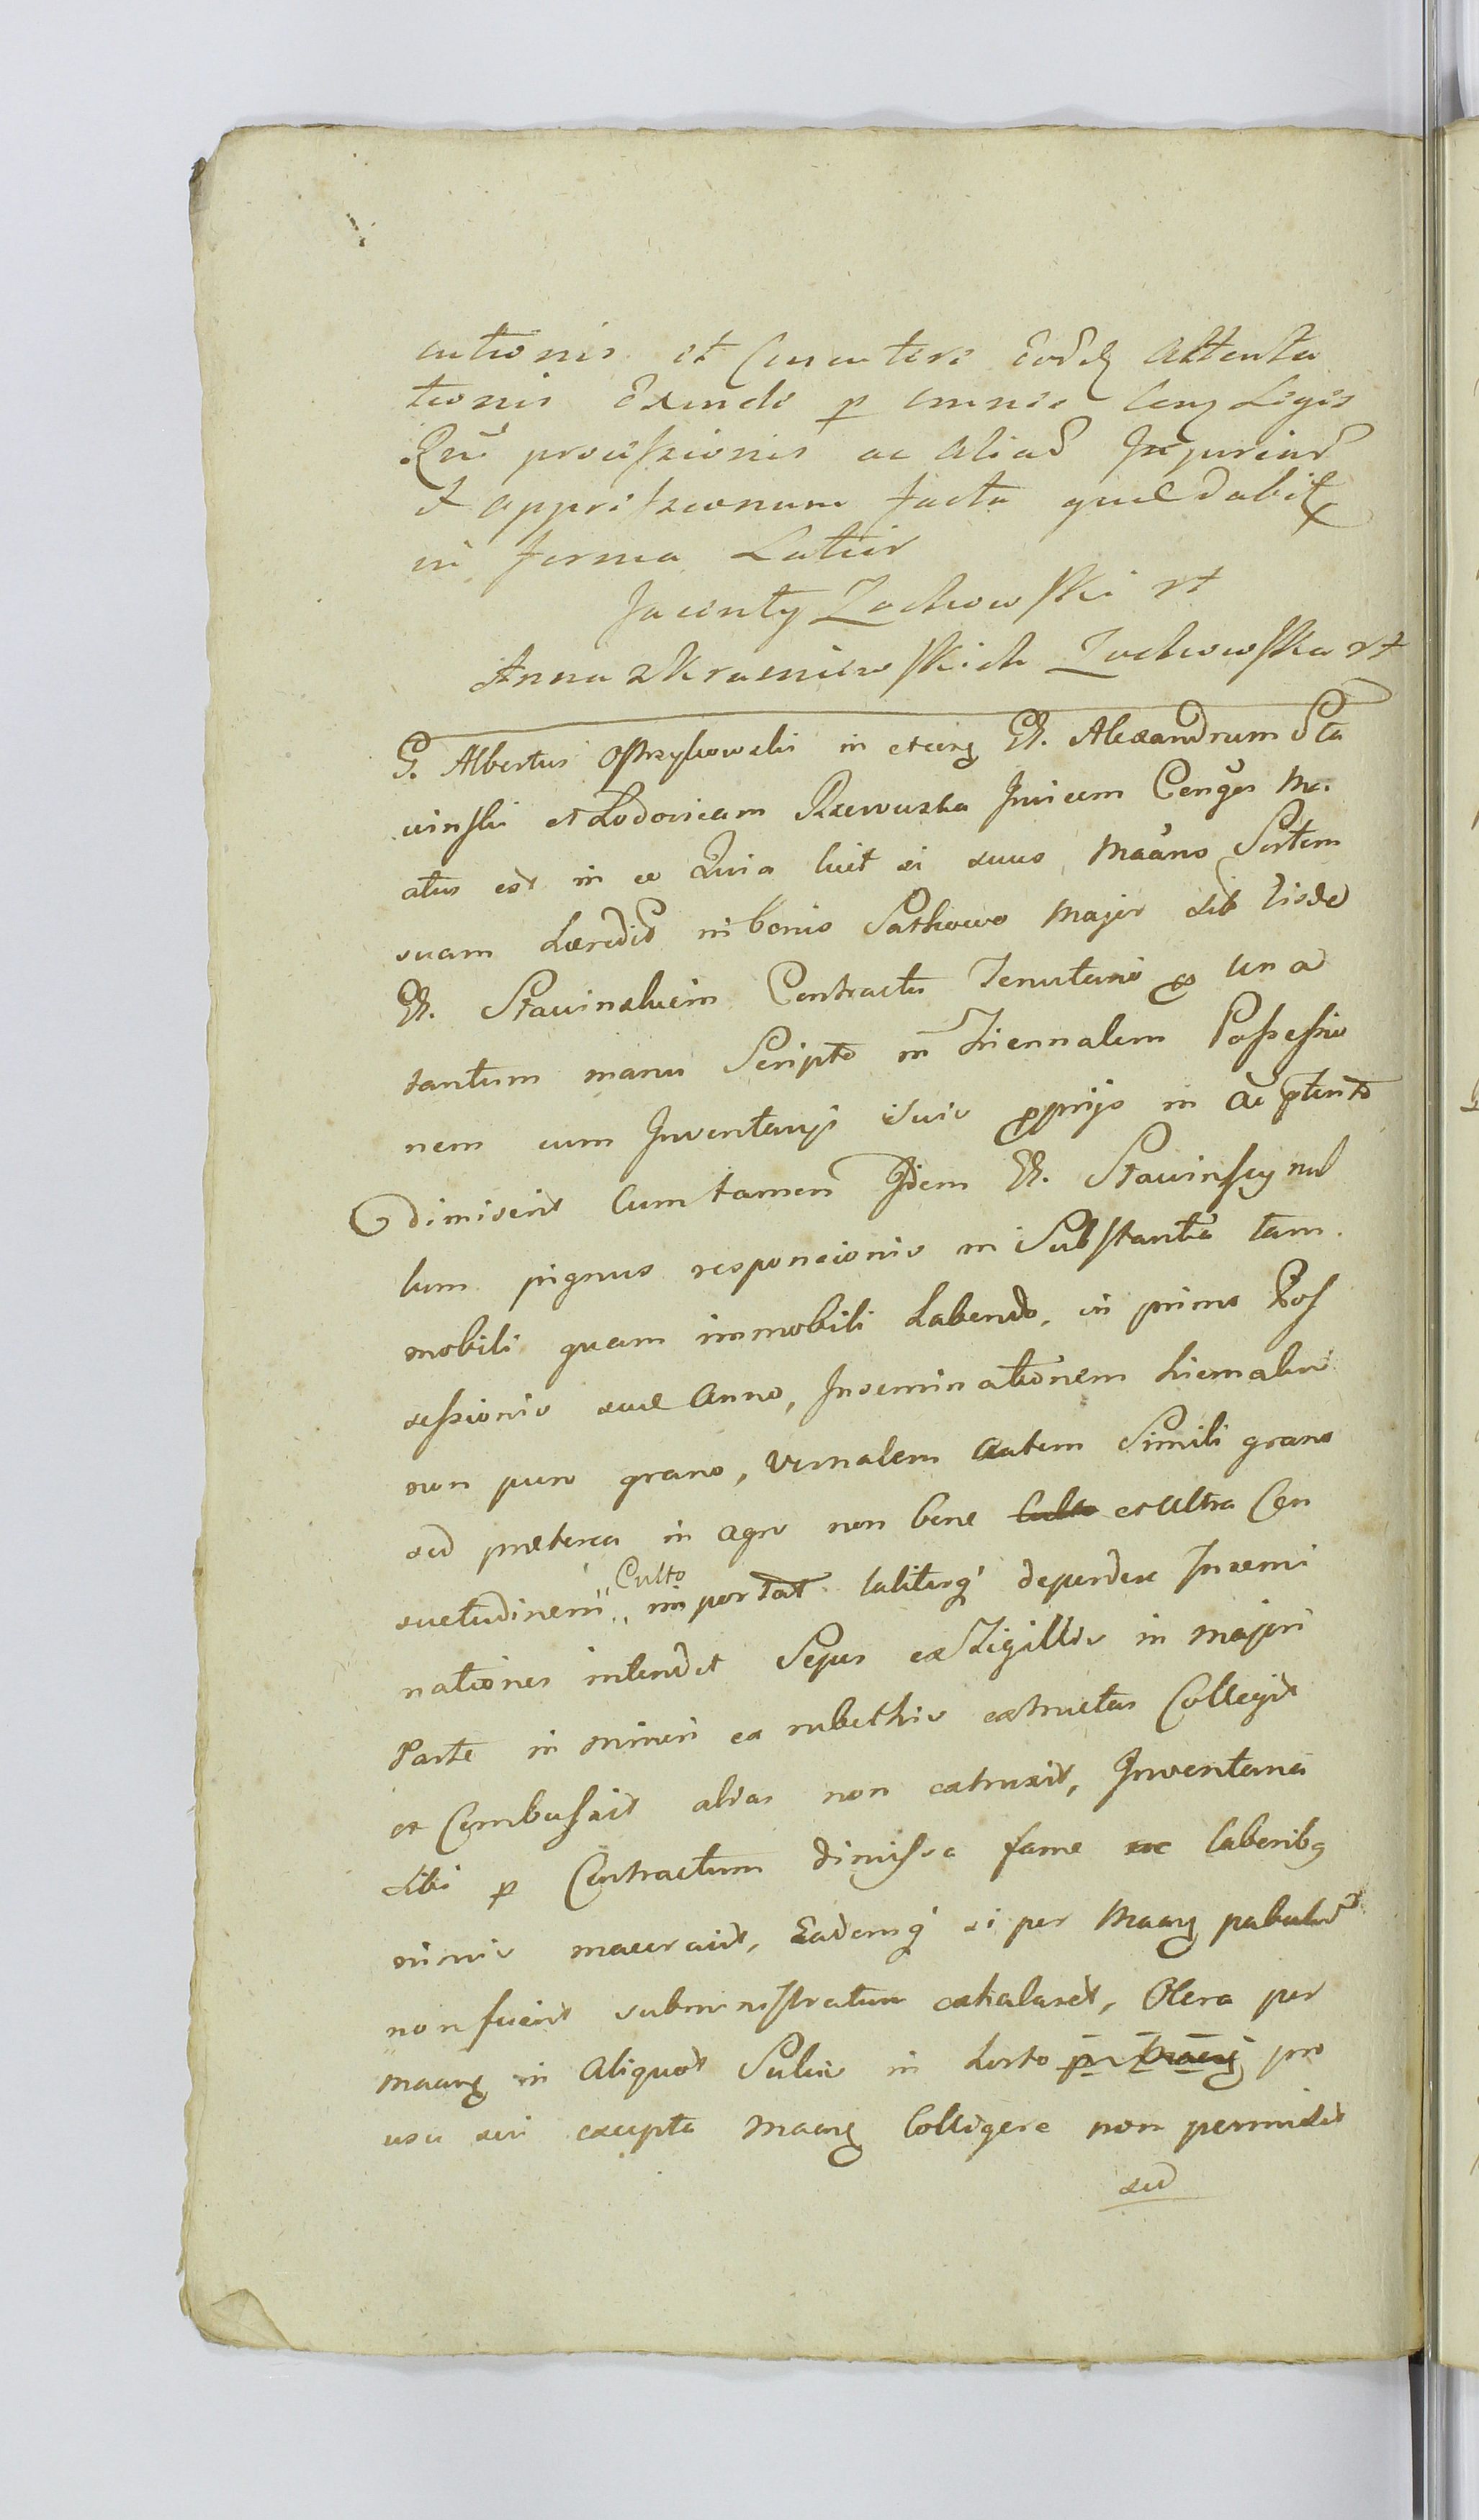 cutionis et
tionis Exinde p omnes Legis
processionis ac aliar Injuriar
et appressionum facta quae dabit
in forma Latior
Jacenty Zochowski rt
Anna z Krasniewskich Zochowska rt
G. Albertus Ostrzykowski in et erg G. Alexandrum Sta
winski et Lodovicam Rzewuska Invicem Conges
atus est in eo Quia licet ei suus Maans Sortem
suam in bonis Sarkowo Major
G. Stawinskiem Contractu Tenutario una
tantum manu Scripto in Triennalem Possessio
nem cum Inventarys suis pprijs in
dimiserit Cum tamen Idem G. Stawinscy nul
lum pignus responsionis in Substantia tam
mobili quam immobili habendo, in primo Pos
sessionis suae Anno, Inseminationem hiemalem
non puro grano, vernalem autem Simili grano
sed praeterea in agro non bene Culto et ultra Con
suetudinem Culto importat taliterq dependere Insemi
nationes intendit Sepes ex Tigillis in majori
Parte in minori ex rubethis extructas Collegit
et Combussit alias non extruxit, Inventaria
sibi p Contractum dimissa fame ac laboribq
nimis maceravit, Eademq si per Maarg pabulum
non fuerit subministratum exhalaret, Olera per
maarg in aliquot Sulcis in horto pro
usu sui excepta Maarg Colligere non permisit
sed